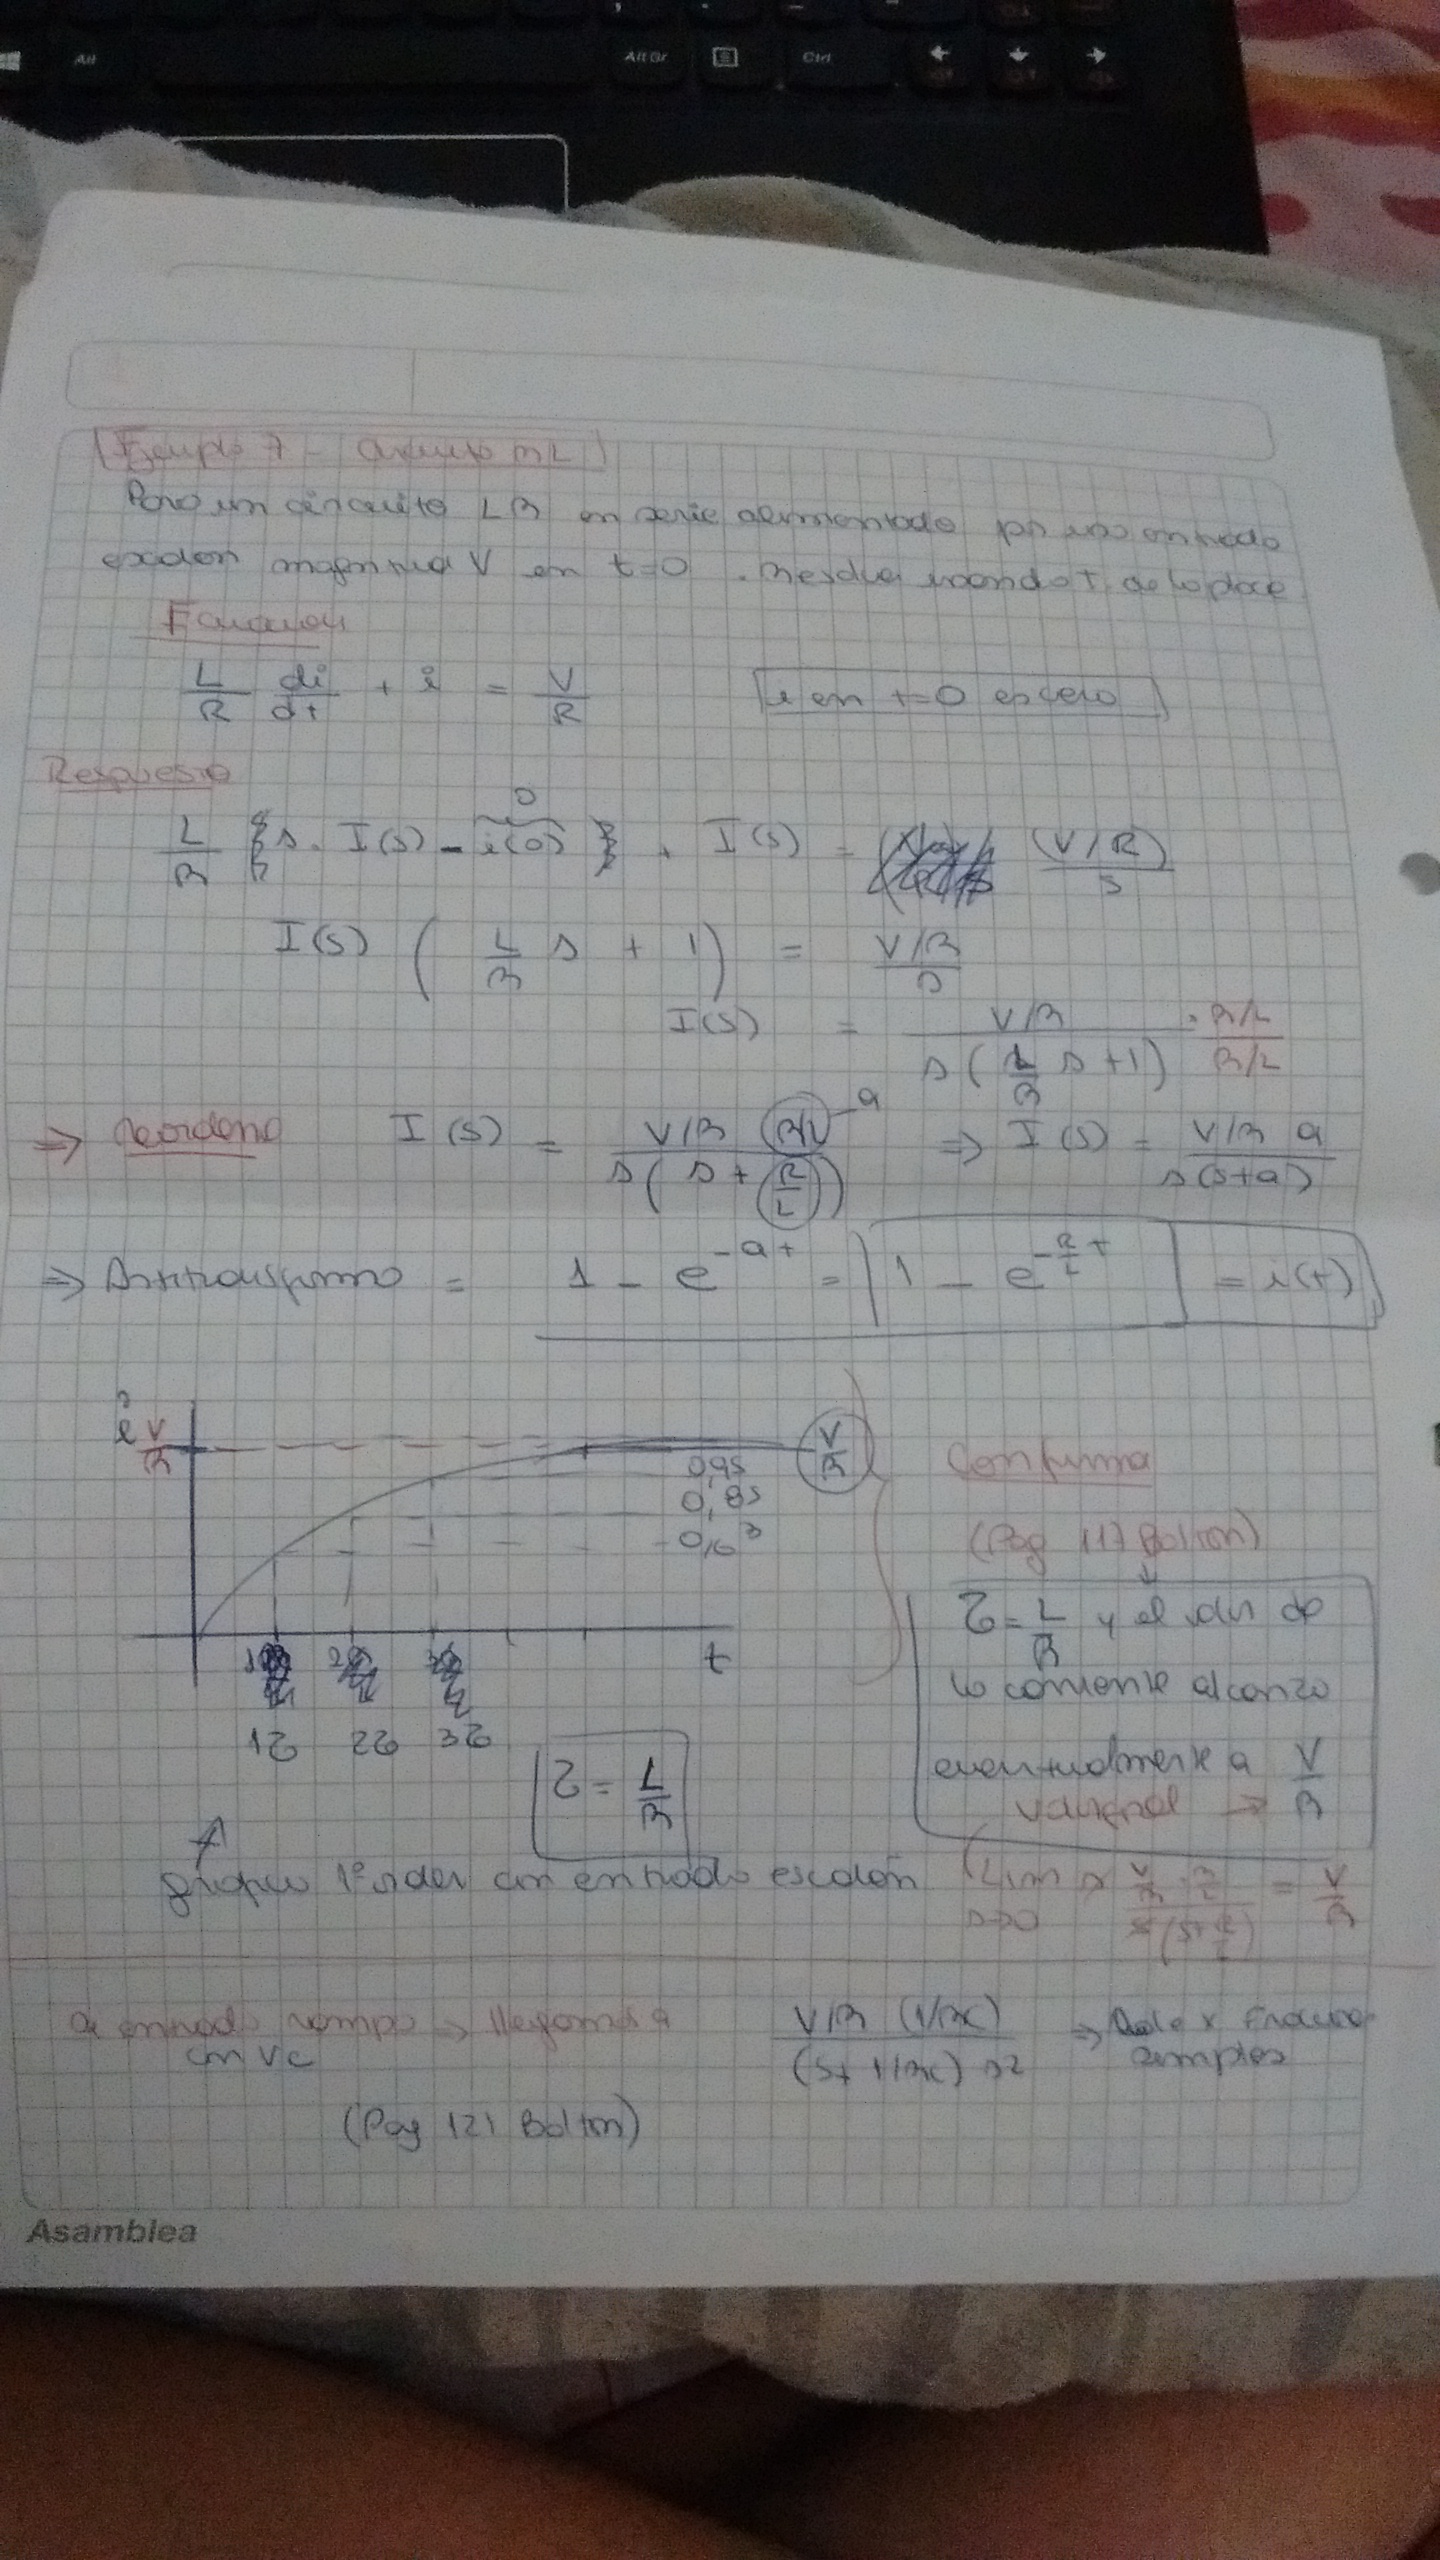 Alt
Alt Gr
Ctrl
Ejemplo 7 - Circuito RL
Para un circuito LR en serie alimentado por una entrada
escalon magnitud V en t=0. Resolver usando T. de Laplace
Ecuacion
L/R di/dt + i = V/R [i en t=0 es cero]
Respuesta
L/R { s. I(s) - i(0) } + I(s) = (V/R)/s
0
I(s) ( L/R s + 1 ) = V/R / s
I(s) = V/R / s(L/R s+1) . R/L / R/L
⇒ Reordeno I(s) = V/R (R/L) / s(s + R/L) - a ⇒ I(s) = V/R a / s(s+a)
⇒ Antitransformo = 1 - e^-at = 1 - e^-R/L t = i(t)
i V/R
V/R
0,95
0,85
0,63
t
1τ 2τ 3τ
τ = L/R
grafico 1º orden con entrada escalón
Confirma
(Pag 117 Bolton)
τ = L/R y el valor de
la corriente alcanza
eventualmente a V/R
Val final →
Lim s→0 s V/R . R/L / s(s+R/L) = V/R
a entrada rampa → llegamos a V/R (1/RC) / (s+1/RC) s2 ⇒ Sale x Fracciones
con Vc simples
(Pag 121 Bolton)
Asamblea